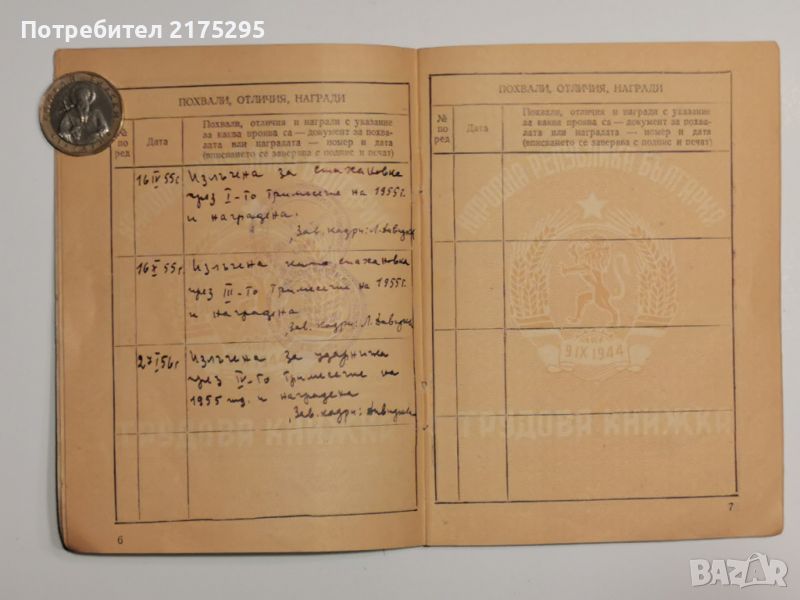 Потребител 2175295
ПОХВАЛИ, ОТЛИЧИЯ, НАГРАДИ
№ по ред
Дата
Похвали, отличия и награди с указание
за каква проява са — документ за похва-
лата или наградата — номер и дата
(вписването се заверява с подпис и печат)
16 IV 55 г. Излъчена за стахановка
през I-то тримесечие на 1955 г.
и наградена.
Зав. кадри: Л. Давидкова
16 X 55 г. Излъчена като стахановка
през III-то тримесечие на 1955 г.
и наградена
Зав. кадри: Л.
27 I 56 г Излъчена за ударничка
през IV-то тримесечие на
1955 год. и наградена
Зав. кадри:
6
ПОХВАЛИ, ОТЛИЧИЯ, НАГРАДИ
№ по ред
Дата
Похвали, отличия и награди с указание
за каква проява са — документ за похва-
лата или наградата — номер и дата
(вписването се заверява с подпис и печат)
НАРОДНА РЕПУБЛИКА БЪЛГАРИЯ
9 IX 1944
ТРУДОВА КНИЖКА
ТРУДОВА КНИЖКА
7
BAZAR